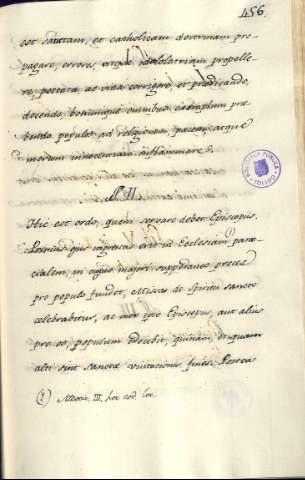 456
est sanctam, et catholicam doctrinam pro-
pagare, errores, atque idololatriam propelle-
re, peccata, ac vitia corrigere, et praedicando,
docendo, bonumque omnibus exemplum prae-
bendo populos ad religionem, pacem, atque
morum innocentiam inflammare.
N. II.
Hic est ordo, quem servare debet Episcopus.
Primusque ingressus erit in Ecclesiam (1) paro-
cialem, in cujus majori suppedaneo preces
pro populo fundet, Missas de Spiritu sancto
celebrabitur, ac mox ipse Episcopus, aut alius
pro eo, populum docebit, quinam, et quam
alti sint sanctae visitationis fines. Postea
(1) III. hoc eod. loc.
BIBLIOTECA PÚBLICA
TOLEDO